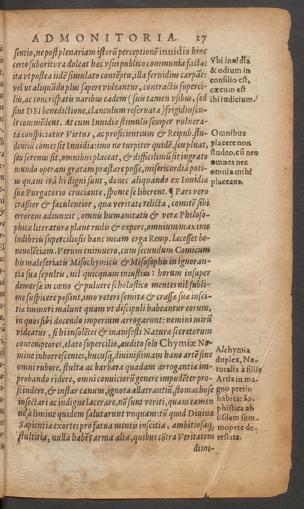 ADMONITORIA. 27
sentio, ne post plenariam istorũ perceptionẽ inuidia hinc
certo suboritura doleat hæc vsui publico communia facta:
ita vt postea iidẽ simulato contẽptu, illa feruidius carpãt:
vel ut aliquãdo plus sapere videantur, contractis superci-
liis, ac concrispatis naribus eadem (sui tamen vsibus, sed
sine DEI benedictione, clanculum reseruata)
lè commẽdent. At cum Inuidia stimulis semper vulnera-
ta conspiciatur Virtus, ac proficientium & Reipub. stu-
dentiũ comes sit Inuidia: imo ne turpiter quidẽ, seu pluat,
seu serenũ sit, omnibus placeat, & difficilimũ sit ingrato
mundo operam gratam præstare posse, misericordia poti-
us quam ira hi digni sunt, donec aliquando ex Inuidia
suæ Purgatorio cruciante, sponte se liberent. ¶ Pars vero
crassior & fæculentior, qua veritate relicta, comitẽ sibi
errorem adiunxit, omnis humanitatis & veræ Philoso-
phicæ literaturæ plane rudis & expers, omnium maximo
ludibriũ superciliosis hanc meam erga Remp. lacesset be-
neuolẽtiam. Verum enimuero, cum secundum Comicum
hi maleferiatis Misochymicis & Misosophis in ignoran-
tia sua sepultis, nil quicquam iniustius: horum insuper
demersæ in cœno & puluere scholastico mentes nil subli-
me suspicere possint, imo veteri semita & crassæ suæ insci-
tiæ immori malunt quam vt discipuli habeantur eorum,
in quos sibi docendi imperium arrogarunt: nemini mirũ
videatur, si hi insolẽtes & manifesti Naturæ secretorum
contemptores, elato supercilio, audito solo Chymiæ No-
mine inhorrescentes, hucusq; diuinißimam hanc artẽ sine
omni rubore, stulta ac barbara quadam arrogantia im-
probando ridere, omni conuitiorũ genere impudẽter pro-
scindere, & instar canum, ignota allatrantiũ, stomachose
insectari ac indigne lacerare, nõ sunt veriti, quam tamen
ne à limine quidem salutarunt vnquam: tũ quod Diuinæ
Sapientiæ exortes pro fatua mentis inscitia, ambitiosaq;
stultitia, nulla habẽt arma alia, quibus cõtra Veritatem
dimi-
Vbi inuidia
& odium in
consilio est,
cæcum est
ibi iudicium.
Omnibus
placere non
studeo, cũ nec
omnes nec
omnia mihi
placeant.
Alchymia
duplex, Na-
turalis à filiis
Artis in ma-
gno pretio
habita: So-
phistica ab
iisdem sum-
mopere de-
testata.